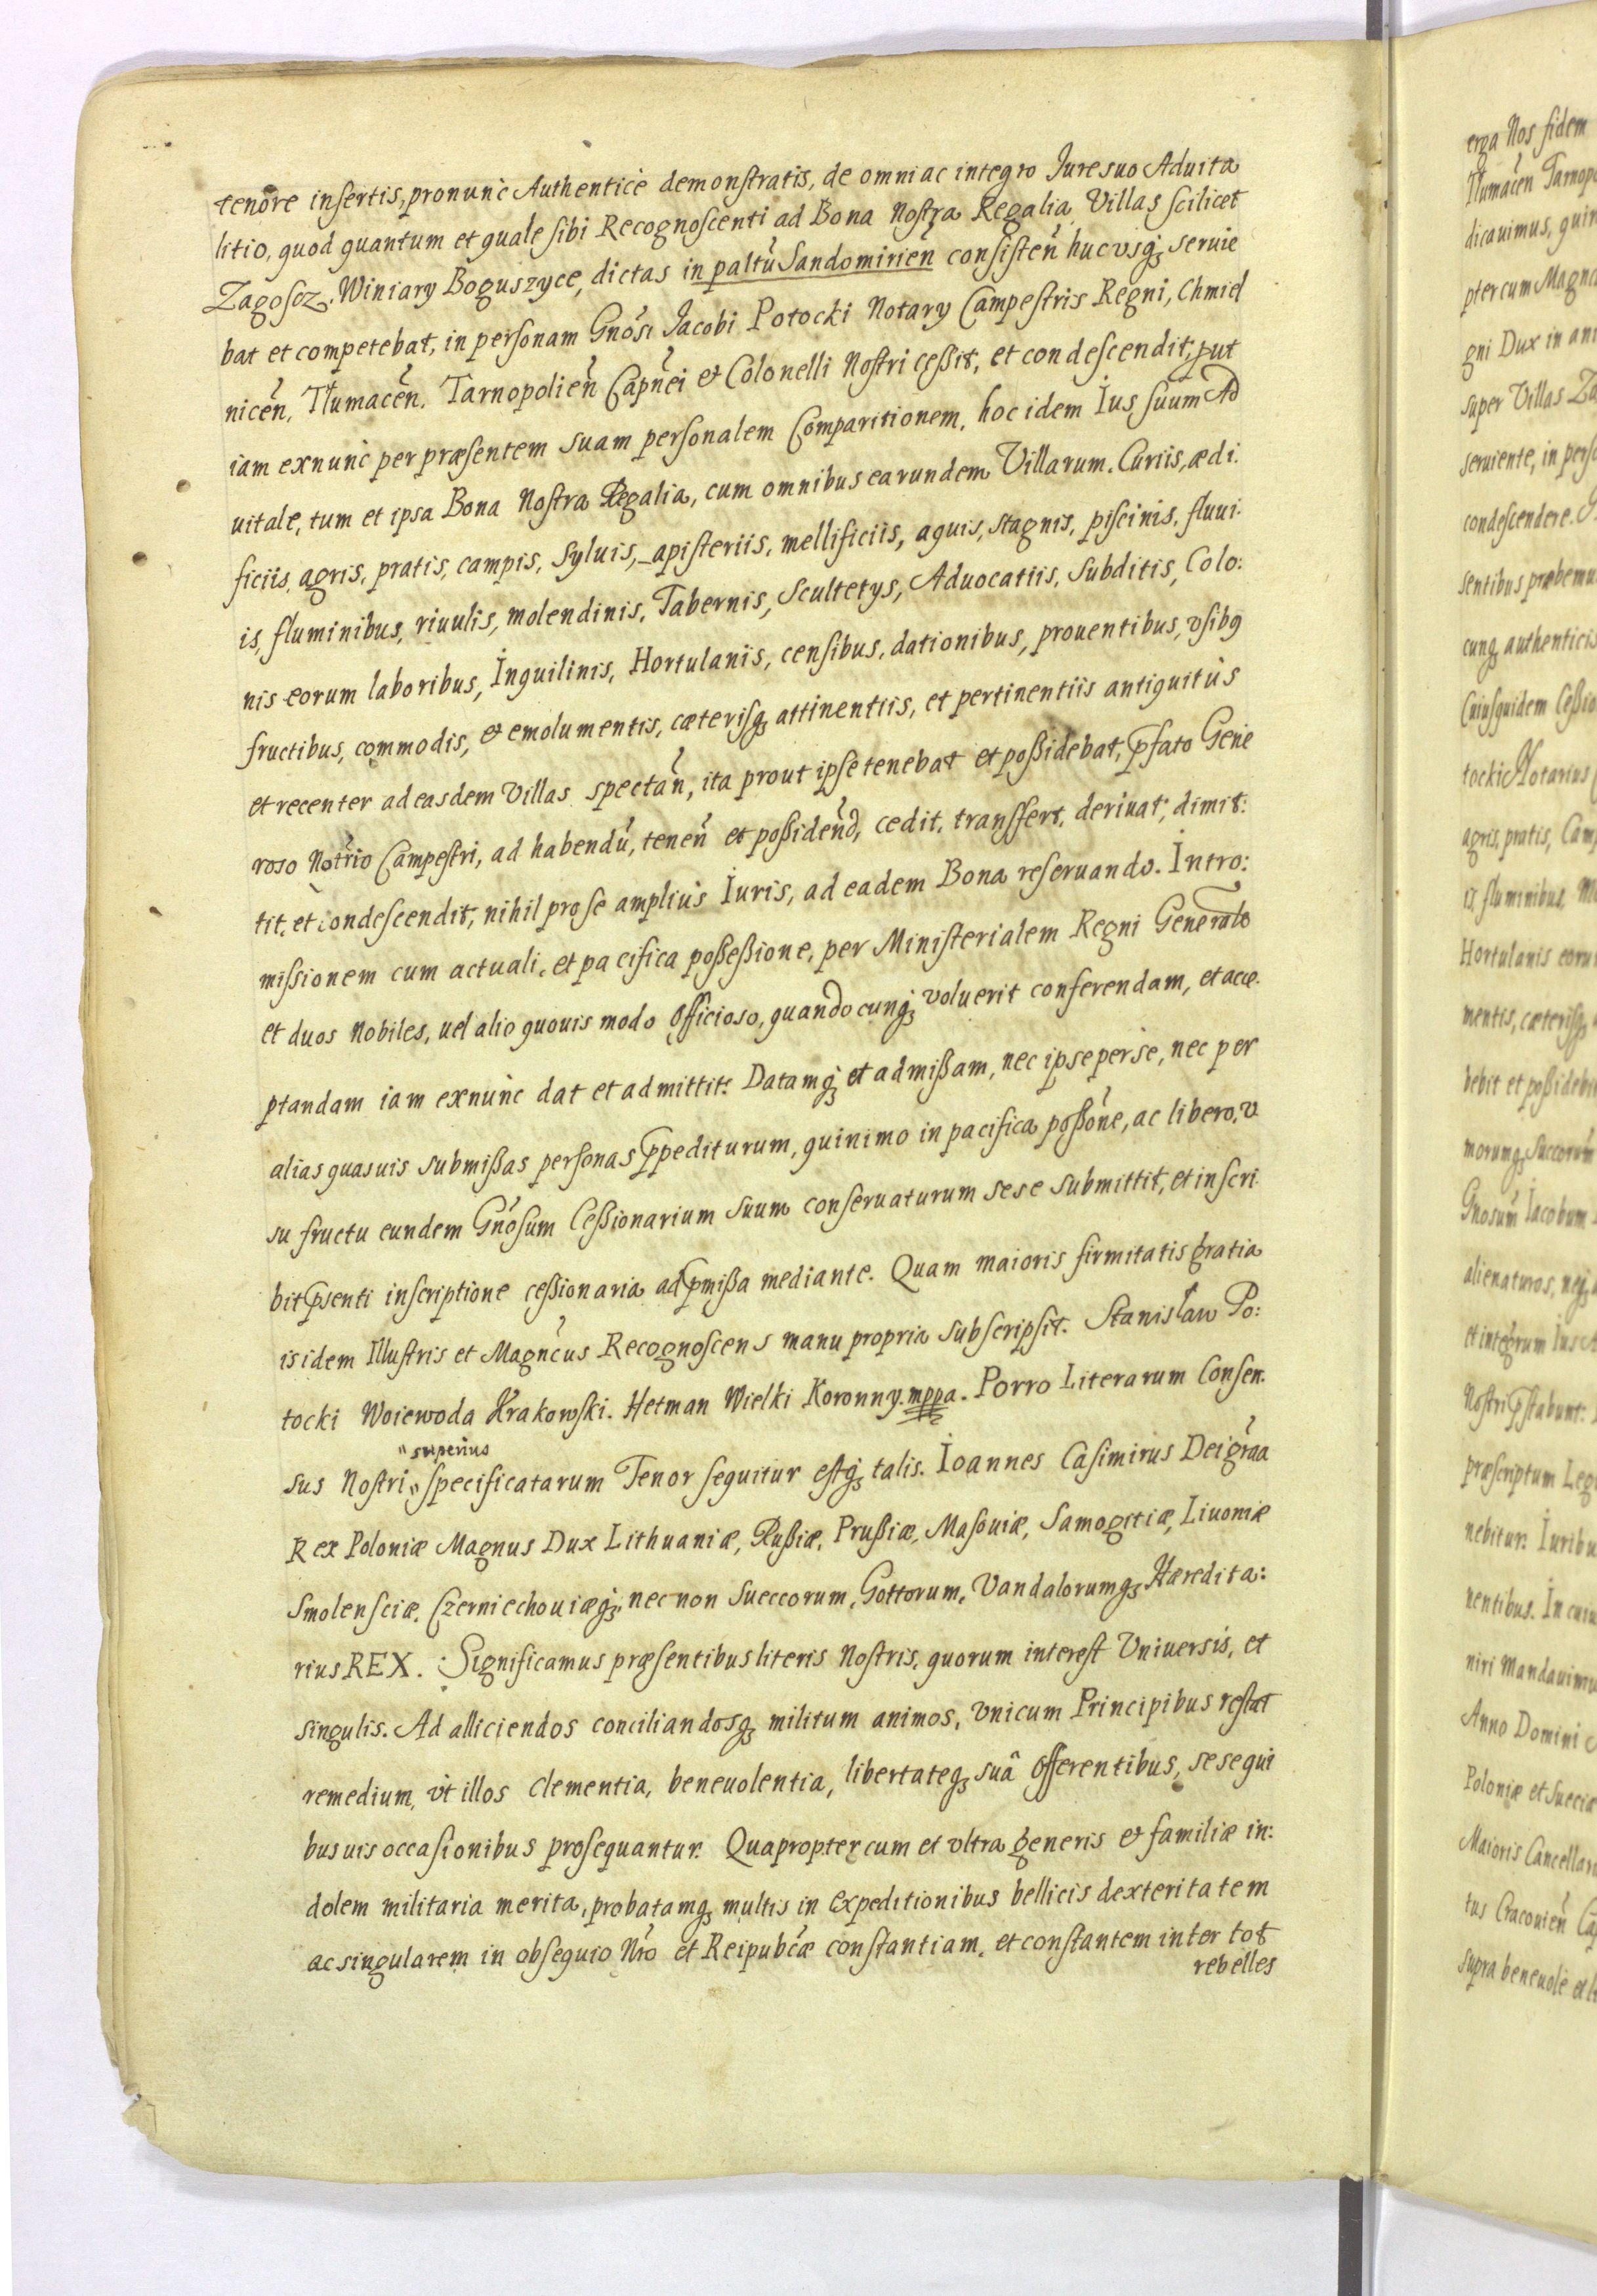 tenore insertis, pronunc Authentice demonstratis, de omni ac integro Jure suo Aduita
litio, quod quantum et quale sibi Recognoscenti ad Bona Nostra Regalia Villas scilicet
Zagoscz. Winiary Boguszyce, dictas in paltũ Sandomirien̉ consisten̉ huc vsq; seruie
bat et competebat, in personam Gnosi Jacobi Potocki Notary Campestris Regni, Chmiel
nicen̉, Tłumacen̉. Tarnopolien̉ Capnei & Colonelli Nostri ceßit, et condescendit, put
iam exnunc per præsentem suam personalem Comparitionem, hoc idem Ius suum Ad
uitale, tum et ipsa Bona Nostra Regalia, cum omnibus earundem Villarum. Curiis, ædi:
ficiis, agris, pratis, campis, Syluis, apisteriis, mellificiis, aquis, stagnis, piscinis, fluui:
is, fluminibus, riuulis, molendinis, Tabernis, Scultetys, Aduocatiis, Subditis, Colo:
nis eorum laboribus, Inquilinis, Hortulanis, censibus, dationibus, prouentibus, vsibq
fructibus, commodis, & emolumentis, cæterisq; attinentiis, et pertinentiis antiquitùs
et recenter ad easdem Villas spectan̉, ita prout ipse tenebat et poßidebat, pfato Gene
roso Notrio Campestri, ad habendũ, tenen̉ et poßidend, cedit, transfert, deriuat, dimit:
tit, et condescendit, nihil pro se amplius Iuris, ad eadem Bona reseruando. Intro:
missionem cum actuali, et pacifica poßeßione, per Ministerialem Regni Generale
et duos Nobiles, uel alio quouis modo Officioso, quandocunq; voluerit conferendam, et acce.
ptandam iam exnunc dat et admittit. Datamq; et admißam, nec ipse per se, nec per
alias quasuis submißas personas ppediturum, quinimo in pacifica poßone, ac libero, v
su fructu eundem Gnosum Ceßionarium suum conseruaturum sese submittit, et inscri
bit psenti inscriptione ceßionaria ad pmißa mediante. Quam maioris firmitatis gratia
is idem Illustris et Magncus Recognoscens manu propria subscripsit. Stanisław Po:
tocki Woiewoda Krakowski. Hetman Wielki Koronny. mppa. Porro Literarum Consen.
superius
sus Nostri specificatarum Tenor sequitur estq; talis. Ioannes Casimirus Dei graa
Rex Poloniæ Magnus Dux Lithuaniæ, Rußiæ, Prußiæ, Masouiæ, Samogitiæ, Liuoniæ
Smolensciæ, Czerniechouiæq;, nec non Sueccorum, Gottorum, Vandalorumq; Hæredita:
rius REX. Significamus præsentibus literis Nostris, quorum interest Vniuersis, et
singulis. Ad alliciendos conciliandosq; militum animos, vnicum Principibus restat
remedium, vt illos Clementia, beneuolentia, libertateq; suâ Offerentibus, se se qui
busuis occasionibus prosequantur. Quapropter cum et vltra generis & familiæ in:
dolem militaria merita, probatamq; multis in Expeditionibus bellicis dexteritatem
ac singularem in obsequio Nro et Reipubcæ constantiam, et constantem inter tot
rebelles
erga Nos fidem
Tłumacen Tarnop
dicauimus, quin
pter cum Magn
gni Dux in an
super Villas Za
seruiente, in pers
condescendere.
sentibus præbemu
cunq; authenticis
Cuiusquidem Ceßio
tocki Notarius
agris, pratis, Camp
is, fluminibus, M
Hortulanis eoru
mentis, cæterisq;
bebit et poßidebi
morumq; Succorum
Gnosum Iacobum
alienaturos, neq;
et integrum Ius A
Nostri pstabunt:
præscriptum Leg
nebitur. Iuribu
nentibus. In cuiu
niri Mandauimu
Anno Domini
Poloniæ et Sueciæ
Maioris Cancellari
tus Cracouien̉ Ca
supra beneuole et li